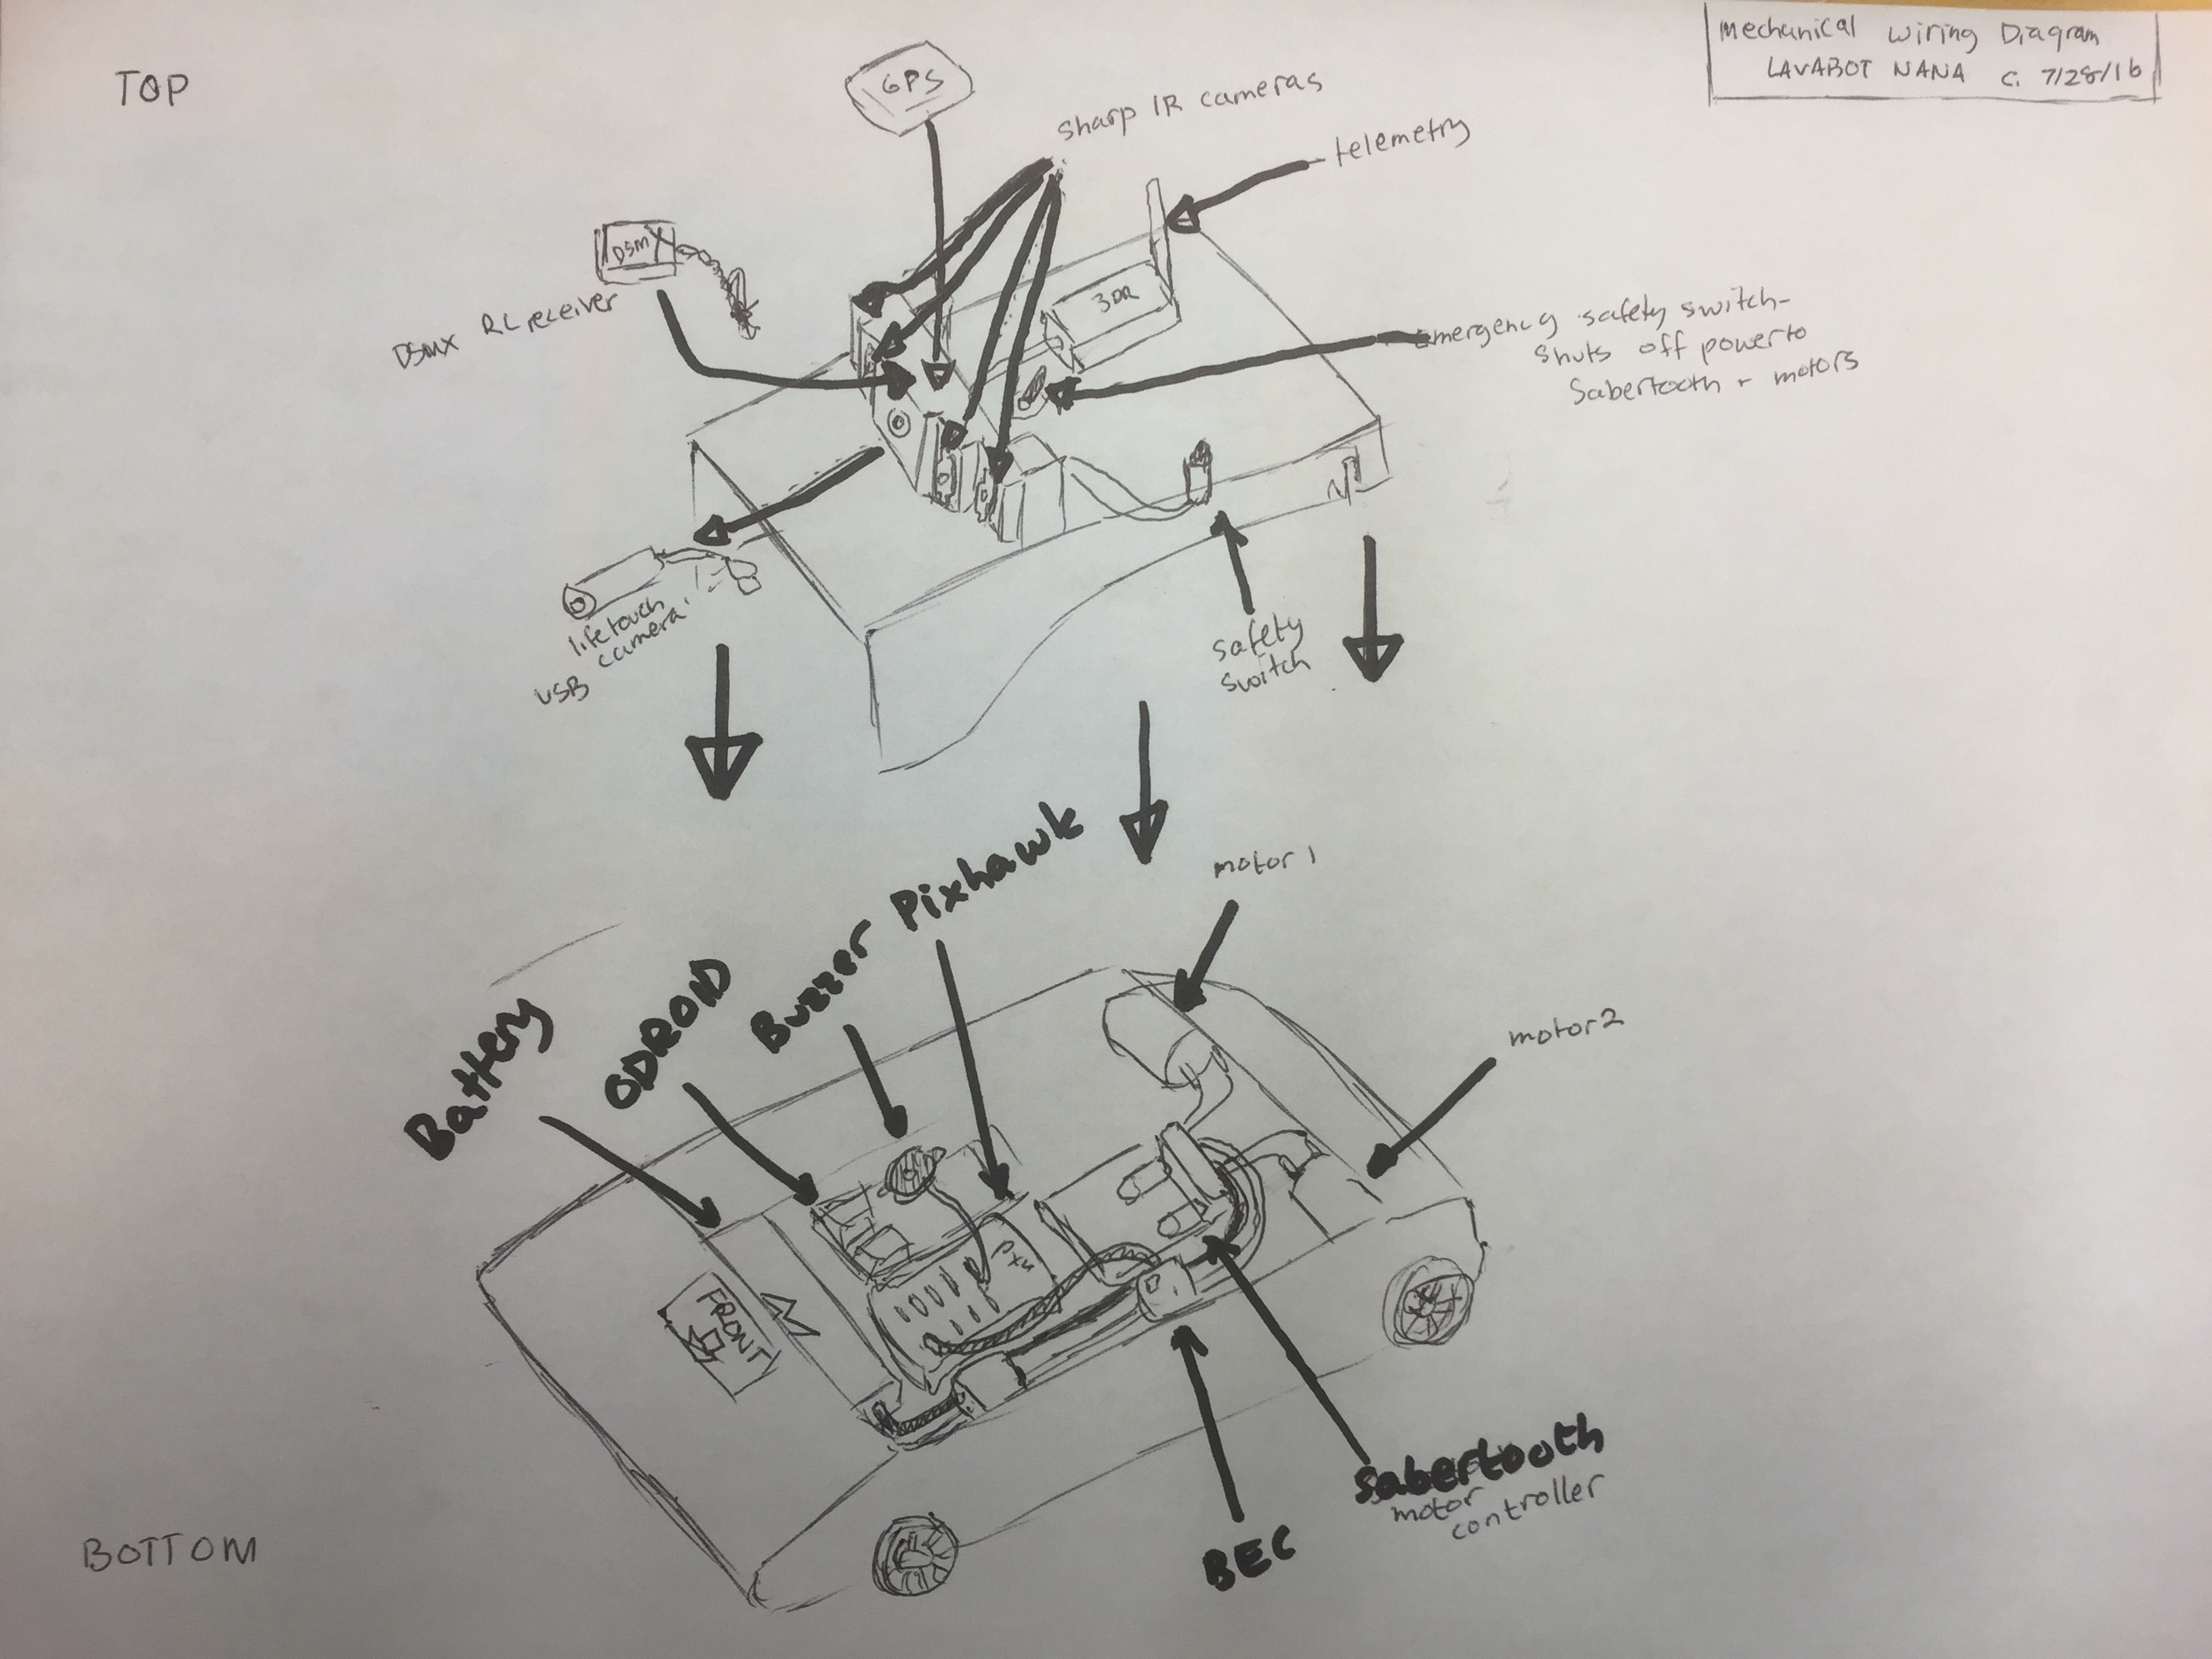 Mechanical Wiring Diagram
LAVABOT NANA c. 7/28/16
TOP
GPS
Sharp IR cameras
telemetry
DSMX
DSMX RC receiver
3DR
emergency safety switch-
shuts off power to
Sabertooth + motors
lifetouch
camera
USB
safety
switch
Pixhawk
motor 1
Buzzer
ODROID
Battery
motor 2
FRONT
Sabertooth
motor
controller
BEC
BOTTOM